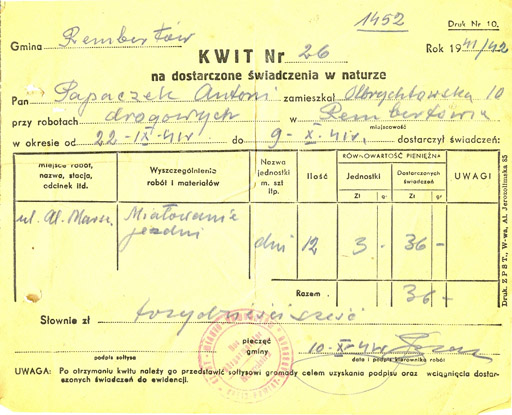 1452
Druk Nr 10.
Gmina Rembertów
KWIT Nr 26
Rok 1941/42
na dostarczone świadczenia w naturze
Pan Papaczek Antoni zamieszkał Olbrychtowska 10
przy robotach drogowych w Rembertowie
miejscowość
w okresie od 22-IX-41r. do 9-X-41r. dostarczył świadczeń:
Miejsce robót, nazwa, stacja, odcinek itd.
Wyszczególnienie robót i materiałów
Nazwa jednostki m. szt itp.
Ilość
RÓWNOWARTOŚĆ PIENIĘŻNA
Jednostki
Dostarczonych świadczeń
UWAGI
Zł gr Zł gr
ul. Al. Marsz. Miałowanie jezdni dni 12 3 - 36 -
Razem 36 -
Słownie zł trzydzieści sześć
pieczęć gminy
10-X-41r
podpis sołtysa
data i podpis kierownika robót
UWAGA: Po otrzymaniu kwitu należy go przedstawić sołtysowi gromady celem uzyskania podpisu oraz wciągnięcia dostar-
czonych świadczeń do ewidencji.
Druk. ZPST., W-wa, Al. Jerozolimska 85